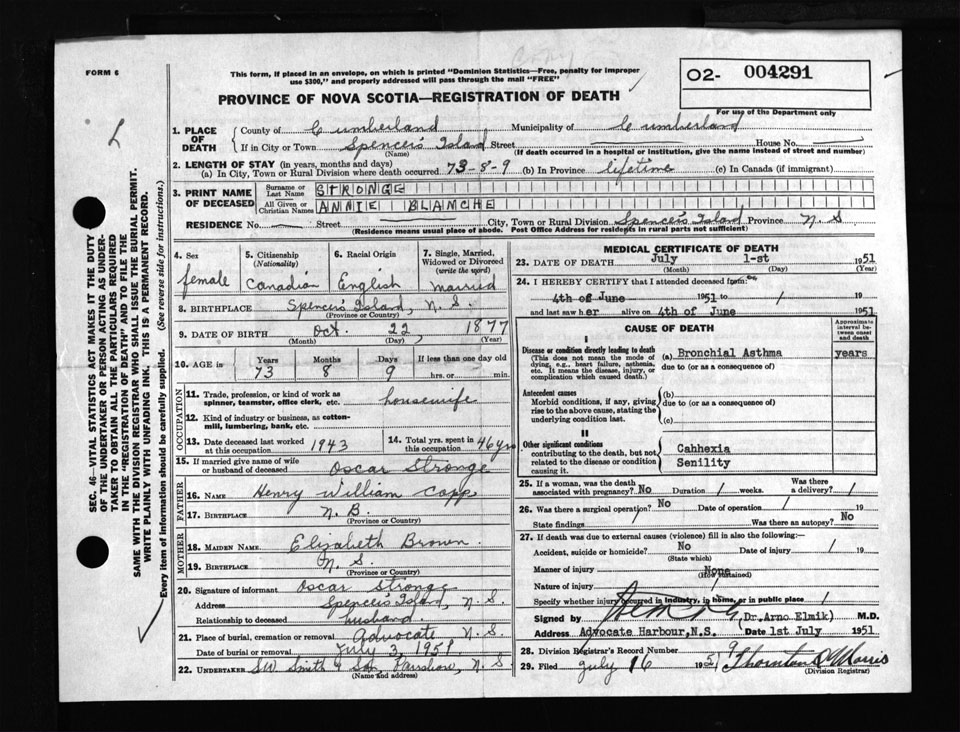 FORM 6
This form, if placed in an envelope, on which is printed "Dominion Statistics—Free, penalty for improper
use $300," and properly addressed will pass through the mail "FREE"
O2- 004291
For use of the Department only
PROVINCE OF NOVA SCOTIA—REGISTRATION OF DEATH
L
1. PLACE OF DEATH
County of Cumberland Municipality of Cumberland
If in City or Town Spencer's Island Street House No.
(Name) (If death occurred in a hospital or institution, give the name instead of street and number)
2. LENGTH OF STAY (in years, months and days)
(a) In City, Town or Rural Division where death occurred 73-8-9 (b) In Province lifetime (c) In Canada (if immigrant)
3. PRINT NAME OF DECEASED
Surname or Last Name STRONGE
All Given or Christian Names ANNIE BLANCHE
RESIDENCE No. Street City, Town or Rural Division Spencer's Island Province N S
(Residence means usual place of abode. Post Office Address for residents in rural parts not sufficient)
4. Sex
female
5. Citizenship
(Nationality)
Canadian
6. Racial Origin
English
7. Single, Married, Widowed or Divorced
(write the word)
married
8. BIRTHPLACE Spencer's Island, N. S.
(Province or Country)
9. DATE OF BIRTH Oct. 22, 1877
(Month) (Day) (Year)
10. AGE is
Years Months Days If less than one day old
73 8 9 hrs. or min.
OCCUPATION
11. Trade, profession, or kind of work as
spinner, teamster, office clerk, etc. housewife
12. Kind of industry or business, as cotton-
mill, lumbering, bank, etc.
13. Date deceased last worked
at this occupation 1943
14. Total yrs. spent in
this occupation 46 yrs
15. If married give name of wife
or husband of deceased Oscar Stronge
FATHER
16. Name Henry William Copp
17. BIRTHPLACE N. B.
(Province or Country)
MOTHER
18. MAIDEN NAME Elizabeth Brown.
19. BIRTHPLACE N. S.
(Province or Country)
20. Signature of informant Oscar Stronge
Address Spencer's Island, N. S.
Relationship to deceased husband
21. Place of burial, cremation or removal Advocate N. S.
Date of burial or removal July 3, 1951
22. UNDERTAKER Smith & Son, Parrsboro, N. S.
(Name and address)
MEDICAL CERTIFICATE OF DEATH
23. DATE OF DEATH July 1-st 1951
(Month) (Day) (Year)
24. I HEREBY CERTIFY that I attended deceased from: on
4th of June 1951 to / 19
and last saw her alive on 4th of June 1951
CAUSE OF DEATH
Approximate interval between onset and death
I
Disease or condition directly leading to death
(This does not mean the mode of
dying, e.g., heart failure, asthenia,
etc. It means the disease, injury, or
complication which caused death.)
(a) Bronchial Asthma years
due to (or as a consequence of)
Antecedent causes
Morbid conditions, if any, giving
rise to the above cause, stating the
underlying condition last.
(b)
due to (or as a consequence of)
(c)
II
Other significant conditions
contributing to the death, but not
related to the disease or condition
causing it.
Cahhexia
Senility
25. If a woman, was the death
associated with pregnancy? No Duration / weeks. Was there
a delivery? /
26. Was there a surgical operation? No Date of operation / 19
State findings / Was there an autopsy? No
27. If death was due to external causes (violence) fill in also the following:—
Accident, suicide or homicide? No Date of injury / 19
(State which)
Manner of injury None
(How sustained)
Nature of injury /
Specify whether injury occurred in industry, in home, or in public place /
Signed by (Dr. Arno Elmik) M.D.
Address Advocate Harbour, N.S. Date 1st July 1951
28. Division Registrar's Record Number 9
29. Filed July 16 1951 Thornton C Morris
(Division Registrar)
SEC. 46—VITAL STATISTICS ACT MAKES IT THE DUTY
OF THE UNDERTAKER OR PERSON ACTING AS UNDER-
TAKER TO OBTAIN ALL THE PARTICULARS REQUIRED
IN THE "REGISTRATION OF DEATH" AND TO FILE THE
SAME WITH THE DIVISION REGISTRAR WHO SHALL ISSUE THE BURIAL PERMIT.
WRITE PLAINLY WITH UNFADING INK. THIS IS A PERMANENT RECORD.
Every item of information should be carefully supplied. (See reverse side for instructions.)